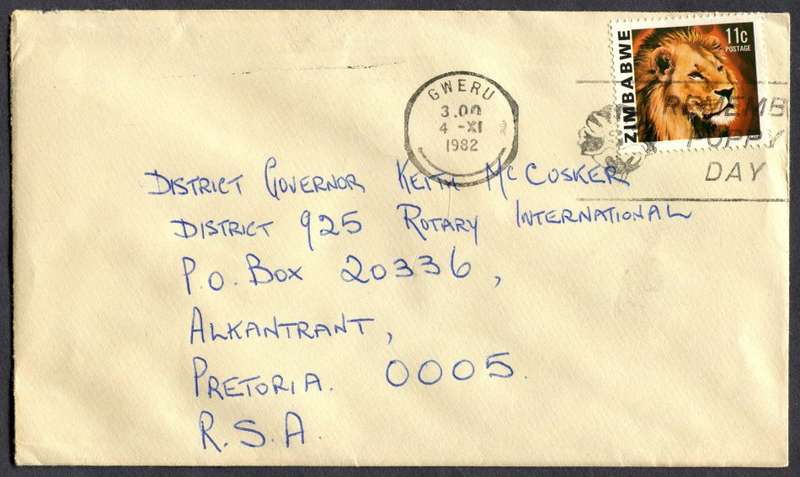 ZIMBABWE
11c
POSTAGE
GWERU
3.00
4 -XI
1982
REMEMB
POPPY
DAY
DISTRICT GOVERNOR KEITH McCUSKER
DISTRICT 925 ROTARY INTERNATIONAL
P.O. BOX 20336,
ALKANTRANT,
PRETORIA. 0005.
R.S.A.